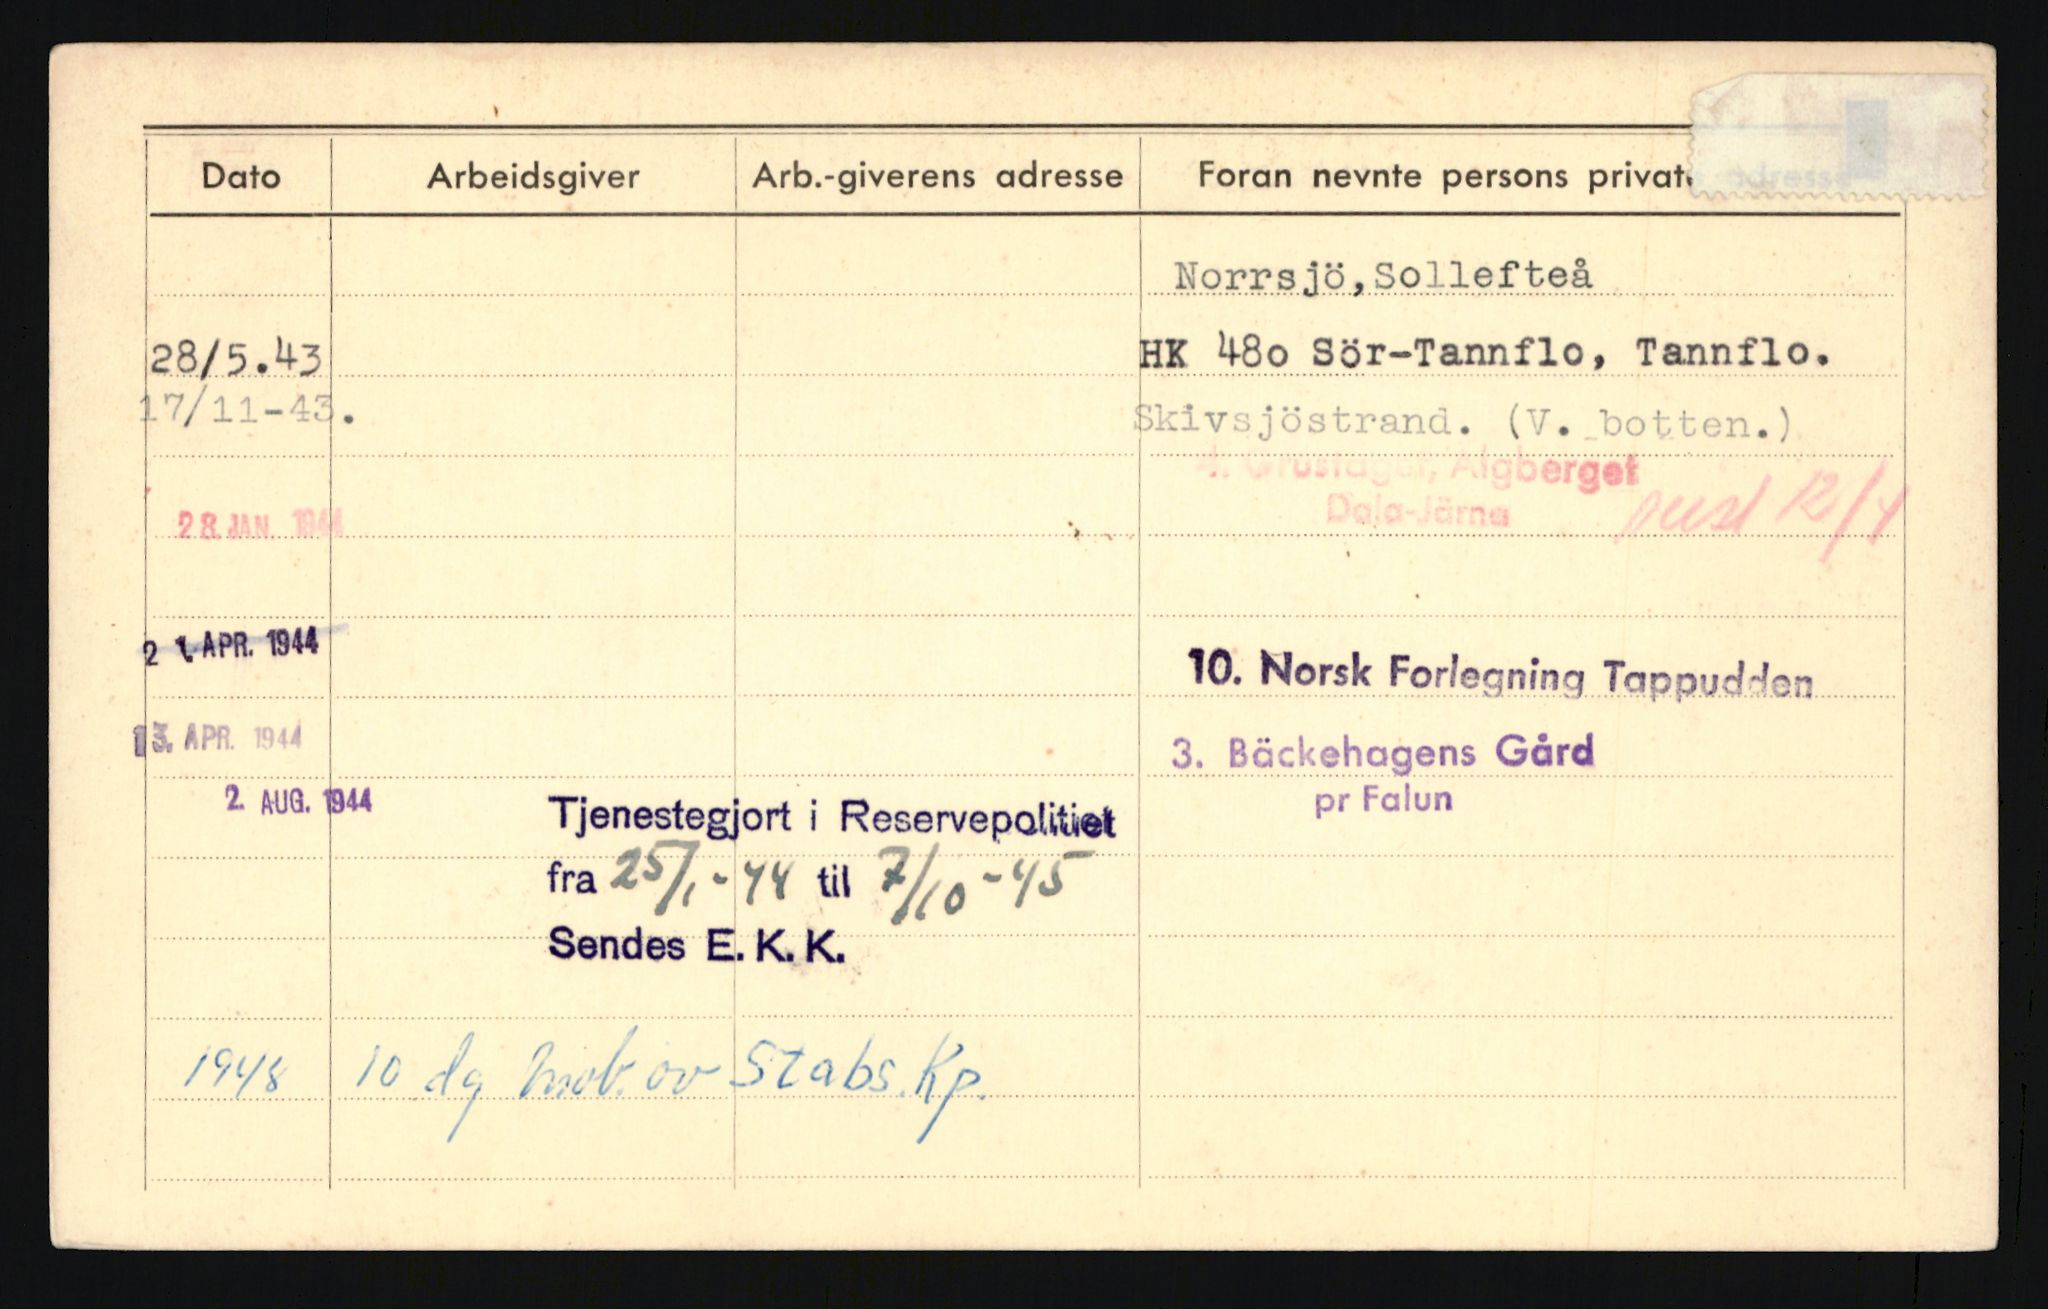 Dato Arbeidsgiver Arb.-giverens adresse Foran nevnte persons private adresse
Norrsjö,Sollefteå
28/5.43 HK 480 Sör-Tannflo, Tannflo.
17/11-43. Skivsjöstrand. (V. botten.)
4. Grustaget, Algberget
28. JAN. 1944 Dala-Järna 12/4
21. APR. 1944 10. Norsk Forlegning Tappudden
13. APR. 1944 3. Bäckehagens Gård
2. AUG. 1944 pr Falun
Tjenestegjort i Reservepolitiet
fra 25/1-44 til 7/10-45
Sendes E. K. K.
1948 10 dg mob. øv Stabs.Kp.